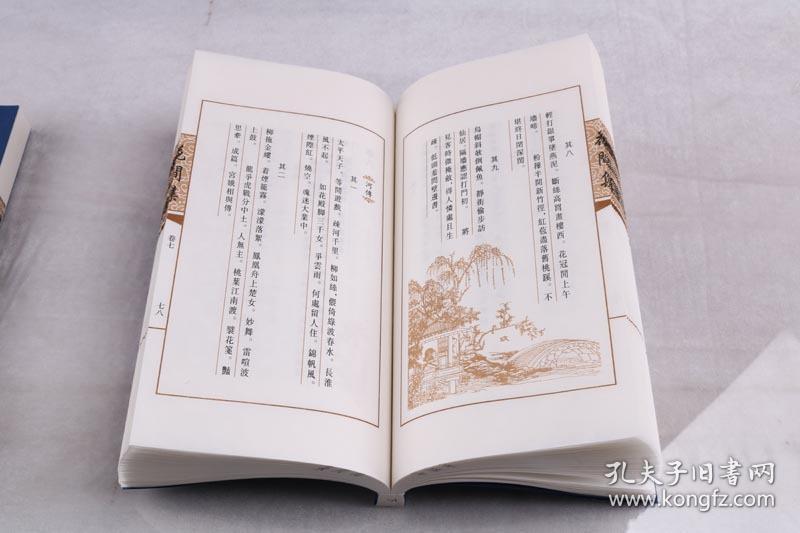 其八
輕打銀箏墜燕泥。斷絲高罥畫樓西。花冠閒上午
墻啼。　粉籜半開新竹徑，紅苞盡落舊桃蹊。不
堪終日閉深閨。
其九
烏帽斜欹倒佩魚。靜街偷步訪
仙居。隔墻應認打門初。　將
見客時微掩斂，得人憐處且生
疎。低頭羞問壁邊書。
河傳
其一
太平天子，等閒遊戲。疎河千里。柳如絲，偎倚綠波春水。長淮
風不起。　如花殿腳三千女。爭雲雨。何處留人住。錦帆風。
煙際紅。燒空。魂迷大業中。
其二
柳拖金縷。着煙籠霧。濛濛落絮。鳳凰舟上楚女。妙舞。雷喧波
上鼓。　龍爭虎戰分中土。人無主。桃葉江南渡。襞花箋。艷
思牽。成篇。宮娥相與傳。
花間集
卷七
七八
孔夫子旧书网
www.kongfz.com